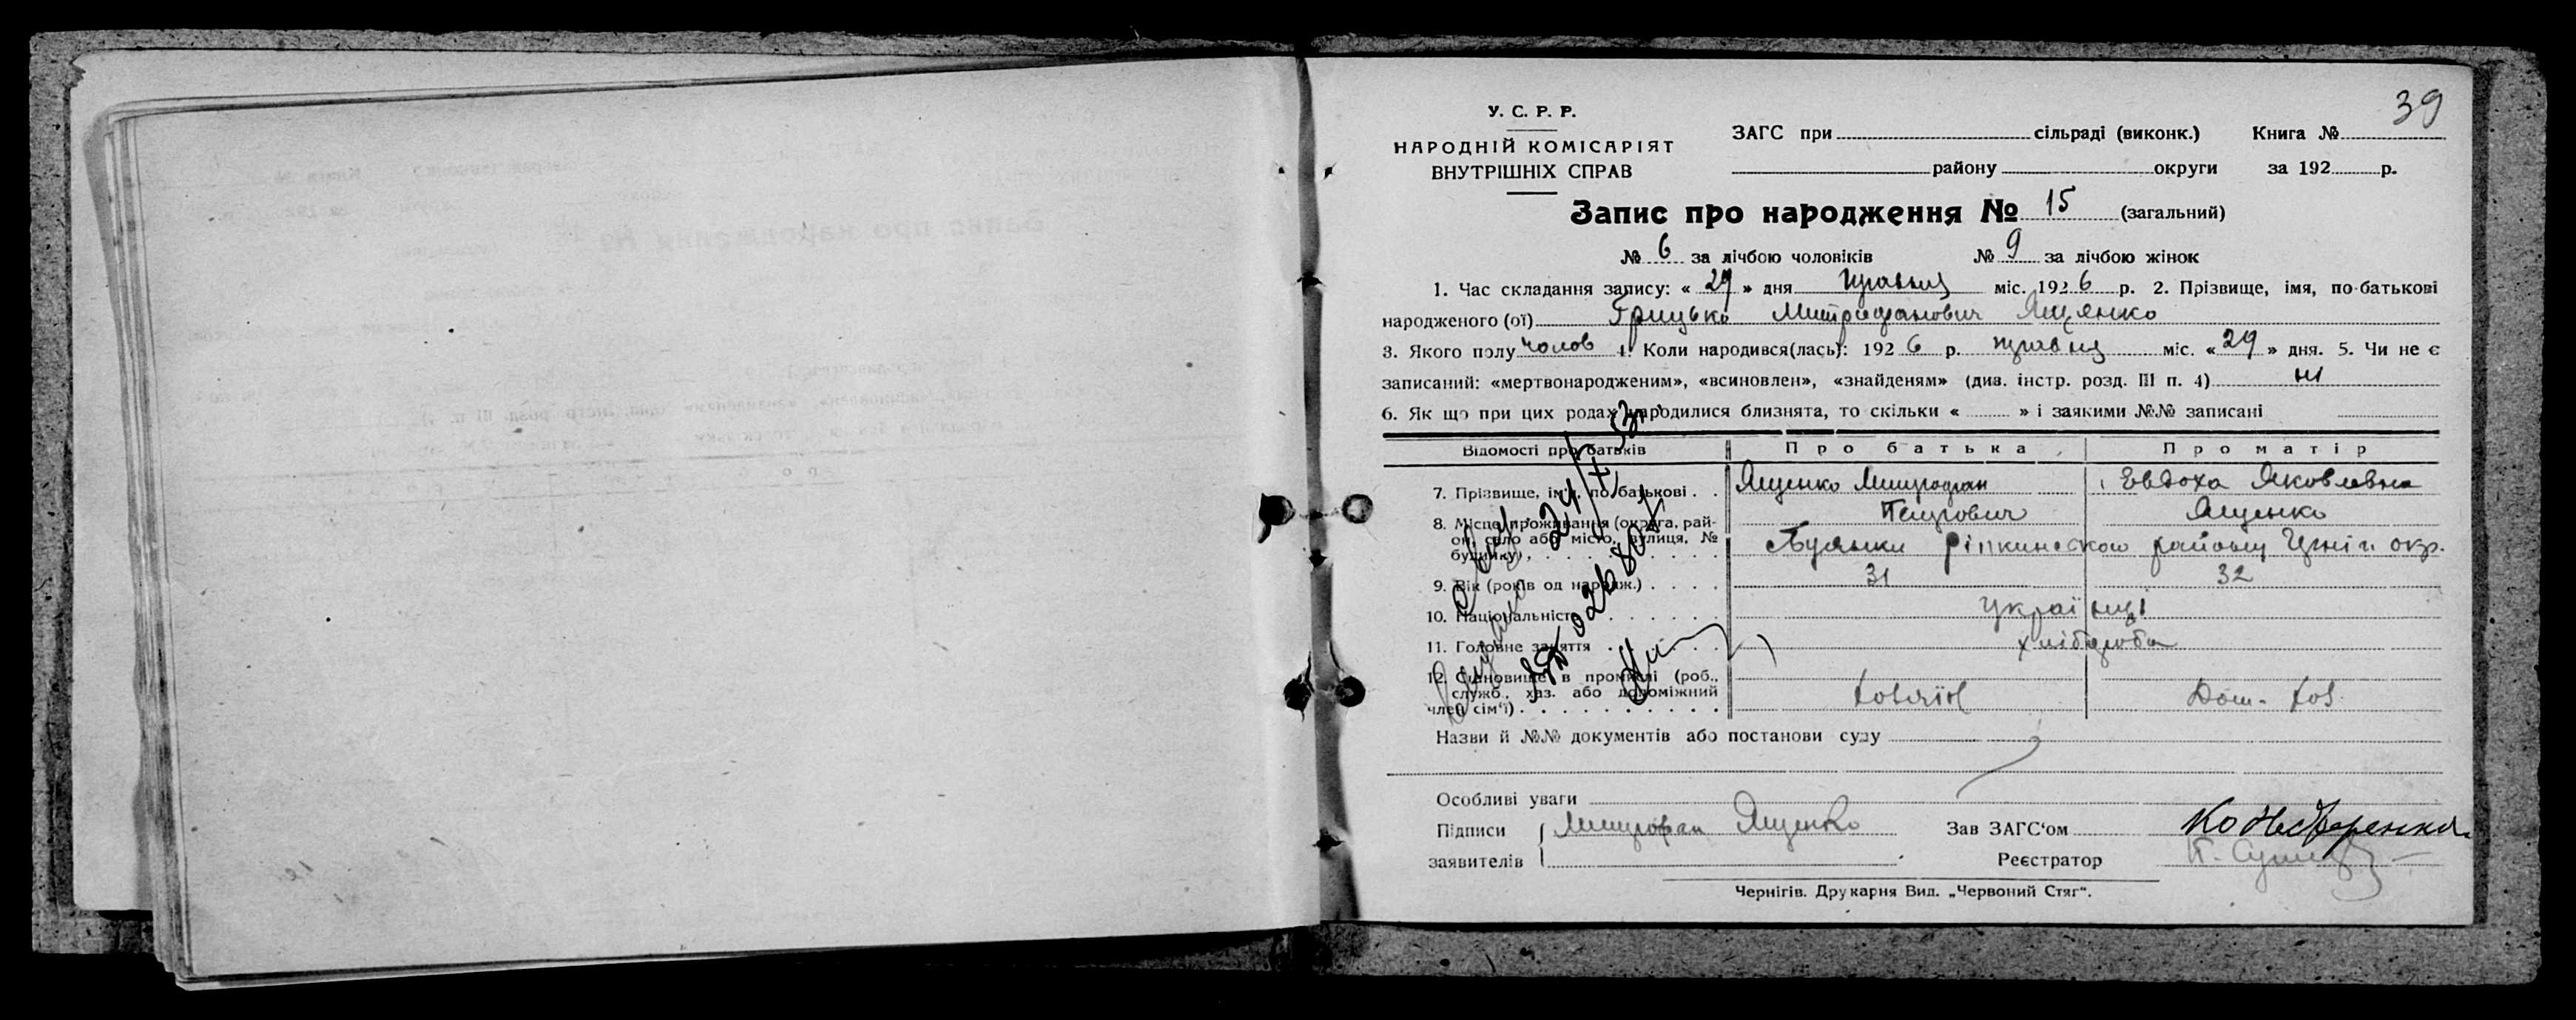 39
У. С. Р. Р.
НАРОДНІЙ КОМІСАРІЯТ
ВНУТРІШНІХ СПРАВ
ЗАГС при сільраді (виконк.) Книга №
району округи за 192 р.
Запис про народження № 15 (загальний)
№ 6 за лічбою чоловіків № 9 за лічбою жінок
1. Час складання запису: « 29 » дня травня міс. 1926 р. 2. Прізвище, імя, по-батькові
народженого (ої) Грицько Митрофанович Ященко
3. Якого полу чолов 4. Коли народився(лась): 192 6 р. травня міс. « 29 » дня. 5. Чи не є
записаний: «мертвонародженим», «всиновлен», «знайденям» (див. інстр. розд. III п. 4) ні
6. Як що при цих родах народилися близнята, то скільки « » і заякими №№ записані
Відомості про батьків Про батька Про матір
7. Прізвище, ім'я, по батькові . . Ященко Митрофан Петрович Евдоха Яковлевна Ященко
8. Місце проживання (округа, рай-
он, село або місто, вулиця, №
будинку) ріпкинского району окр.
9. Вік (років од народж.) . . . . 31 32
10. Національність українці
11. Головне заняття хлібороби
12. Становище в промислі (роб.,
служб., хаз. або допоміжний
член сім'ї) хозяїн Дом. хоз.
Назви й №№ документів або постанови суду
Особливі уваги
Підписи Митрофан Ященко Зав ЗАГС'ом
заявителів Реєстратор
Чернігів. Друкарня Вид. „Червоний Стяг“.